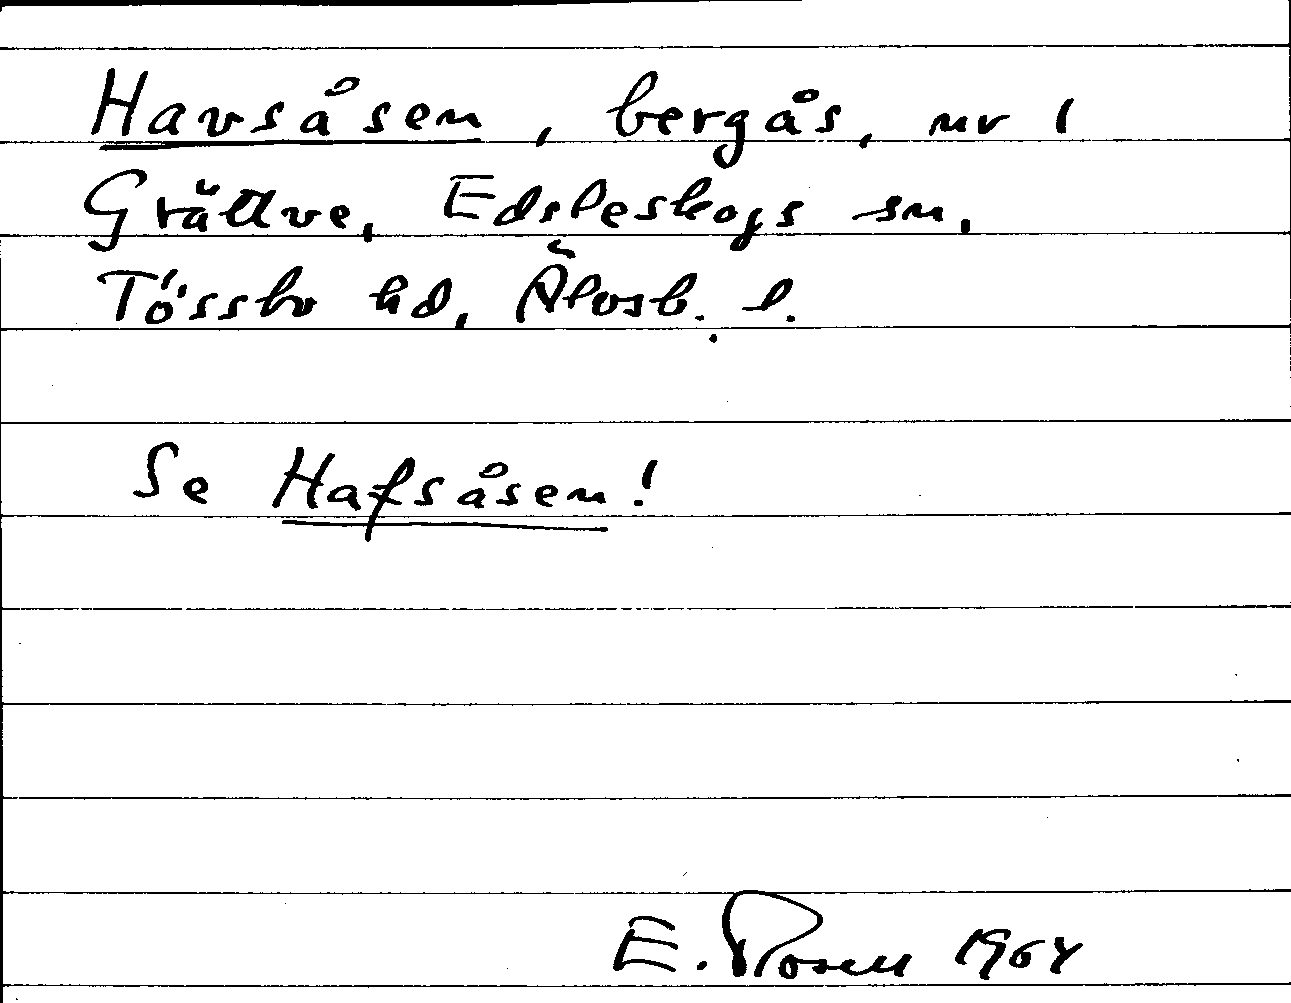 Havsåsen, bergås, nr 1
Grättve, Edsleskogs sn,
Tössbo hd, Älvsb. l.
Se Hafsåsen!
E. Rosell 1964